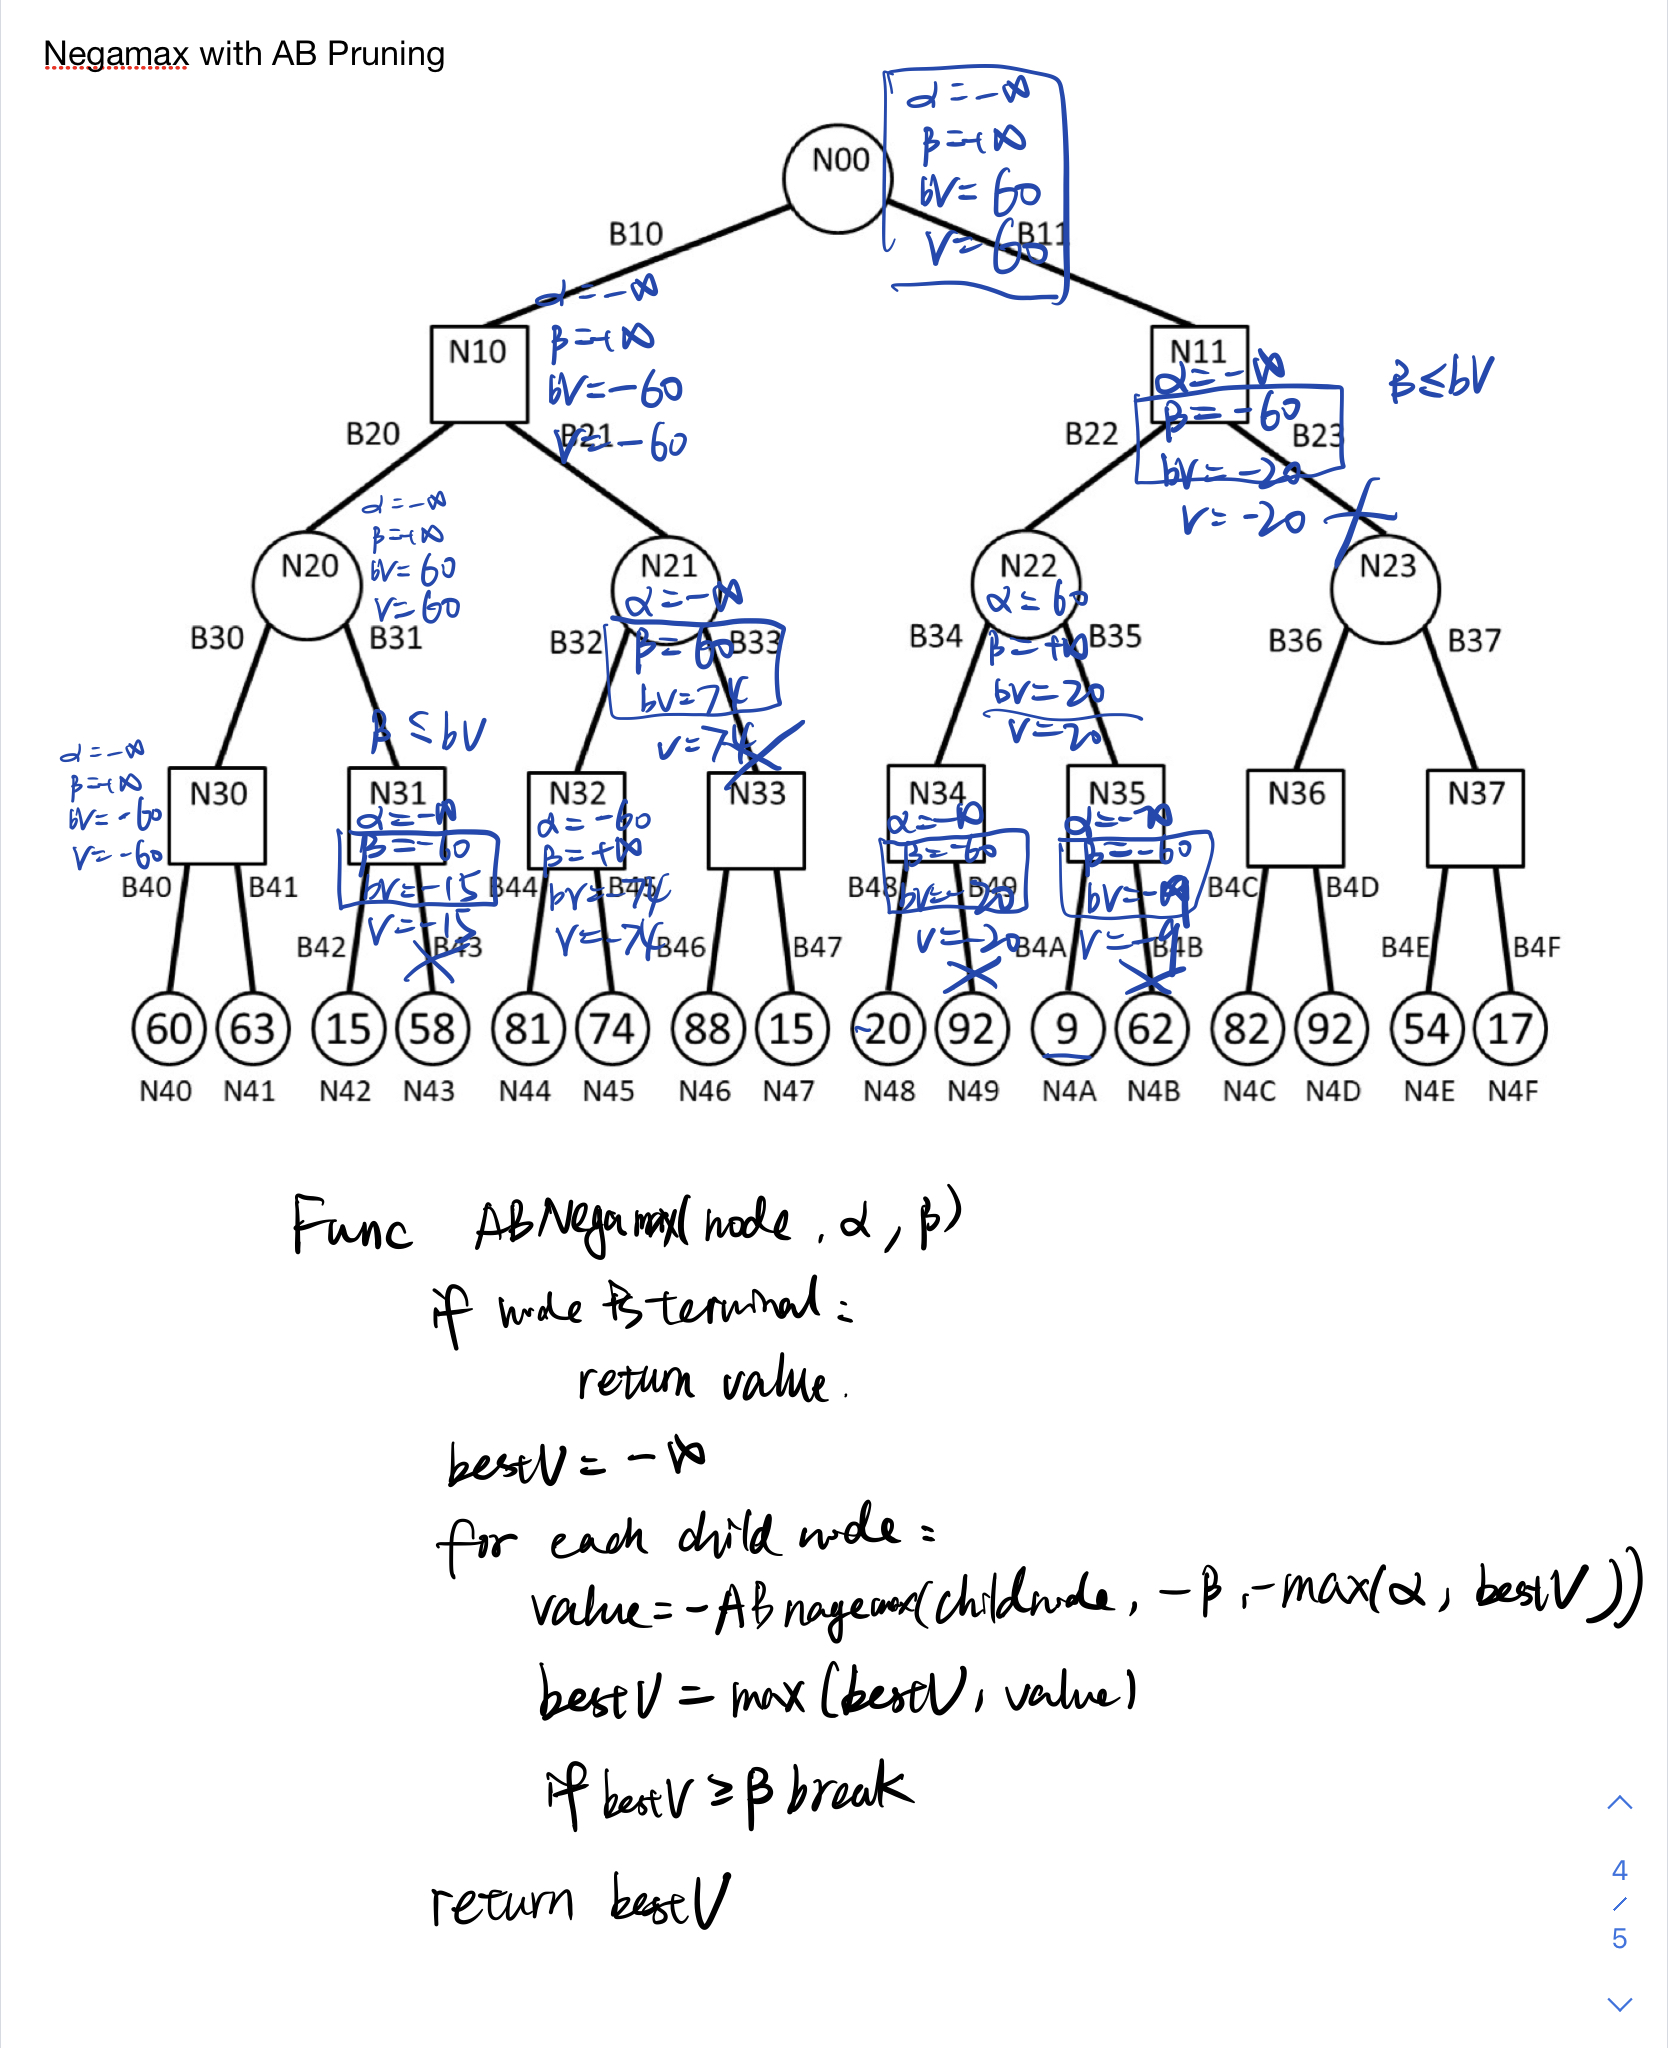 Negamax with AB Pruning
α=-∞
β=+∞
bV=60
V=60
N00
B10
B11
α=-∞
β=+∞
bV=-60
V=-60
N10
N11
α=-∞
β=-60
bV=-20
V=-20
β≤bV
B20
B21
B22
B23
α=-∞
β=+∞
bV=60
V=60
N20
N21
α=-∞
β=60
bV=74
V=74
N22
α=60
β=+∞
bV=20
V=20
N23
B30
B31
B32
B33
B34
B35
B36
B37
β≤bV
α=-∞
β=+∞
bV=-60
V=-60
N30
N31
α=-∞
β=-60
bV=-15
V=-15
N32
α=-60
β=+∞
bV=-74
V=-74
N33
N34
α=-∞
β=-60
bV=-20
V=-20
N35
α=-∞
β=-60
bV=-9
V=-9
N36
N37
B40
B41
B42
B43
B44
B45
B46
B47
B48
B49
B4A
B4B
B4C
B4D
B4E
B4F
60 63 15 58 81 74 88 15 -20 92 9 62 82 92 54 17
N40 N41 N42 N43 N44 N45 N46 N47 N48 N49 N4A N4B N4C N4D N4E N4F
Func ABNegamax(node, α, β)
if node is terminal:
return value.
bestV = -∞
for each child node:
value=-ABnagemax(childnode, -β, -max(α, bestV))
bestV = max(bestV, value)
if bestV ≥ β break
return bestV
4
/
5